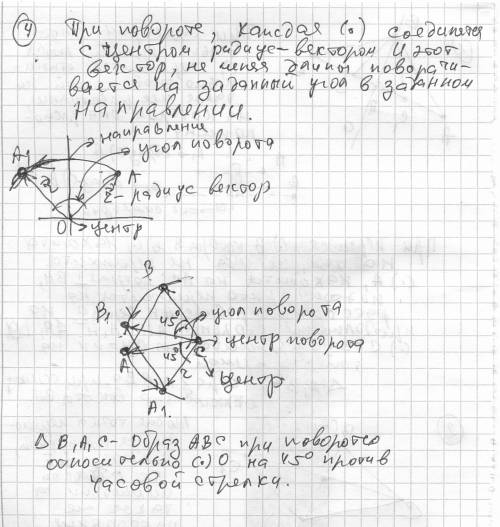 4 При повороте, каждая (•) соединяется
с центром радиус-вектором и этот
вектор, не меняя длины поворачи-
вается на заданный угол в заданном
направлении.
направление
A1 угол поворота
r r A
r - радиус вектор
O центр
B
B1 45° угол поворота
центр поворота
A 45° C
r центр
A1.
Δ B1A1C - Образ ABC при повороте
относительно (•) O на 45° против
часовой стрелки.